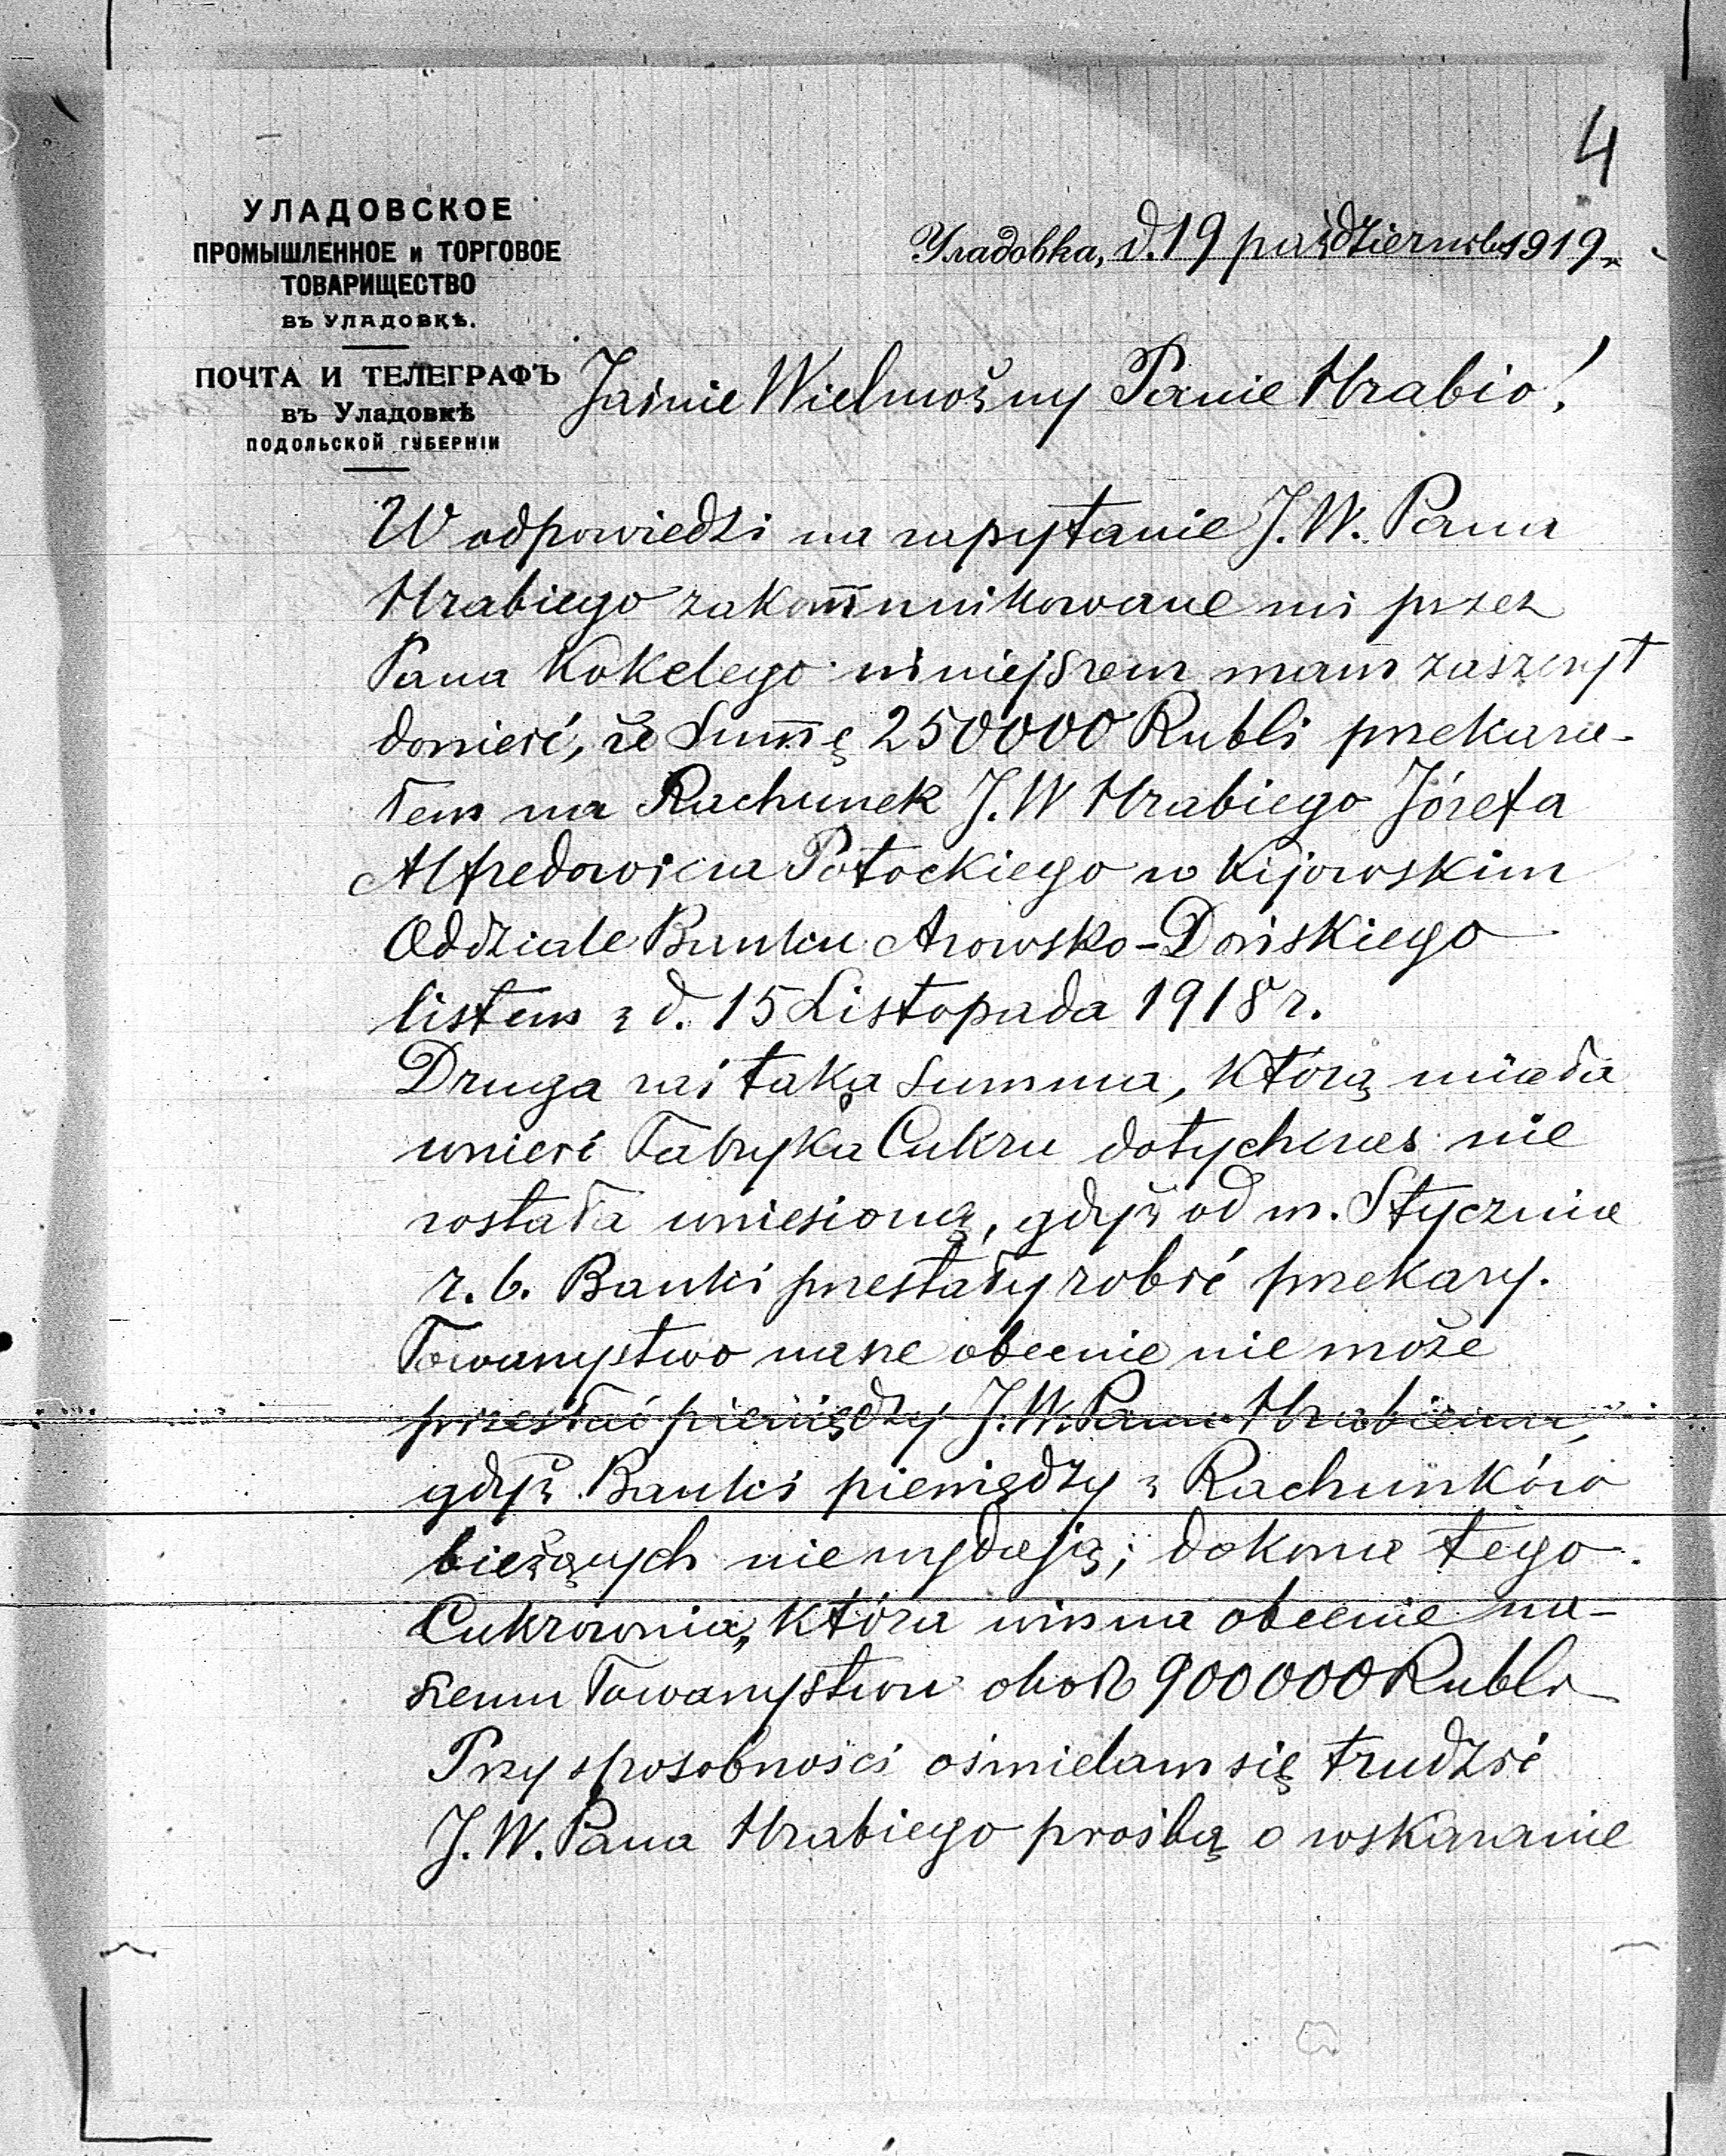 4
УЛАДОВСКОЕ
ПРОМЫШЛЕННОЕ и ТОРГОВОЕ
ТОВАРИЩЕСТВО
въ УЛАДОВКѢ.
ПОЧТА И ТЕЛЕГРАФЪ
въ Уладовкѣ
ПОДОЛЬСКОЙ ГУБЕРНІИ
Уладовка, d. 19 października 1919 r.
Jaśnie Wielmożny Panie Hrabio!
W odpowiedzi na zapytanie J. W. Pana
Hrabiego zakom̄unikowane mi przez
Pana Kokelego niniejszem mam zaszczyt
donieść, że Sum̄ę 250000 Rubli przekaza-
łem na Rachunek J. W Hrabiego Józefa
Alfredowicza Potockiego w Kijowskim
Oddziale Banku Azowsko-Dońskiego
listem z d. 15 Listopada 1918 r.
Druga zaś taka Summa, którą miała
wnieść Fabryka Cukru dotychczas nie
została wniesioną, gdyż od m. Stycznia
r. b. Banki przestały robić przekazy.
Towarzystwo nasze obecnie nie może
przesłać pieniędzy J. W. Panu Hrabiemu,
gdyż Banki pieniędzy z Rachunków
bieżących nie wydają; dokona tego
Cukrownia, która winna obecnie na-
szemu Towarzystwu około 900000 Rubli
Przy sposobności ośmielam się trudzić
J. W. Pana Hrabiego prośbą o wskazanie